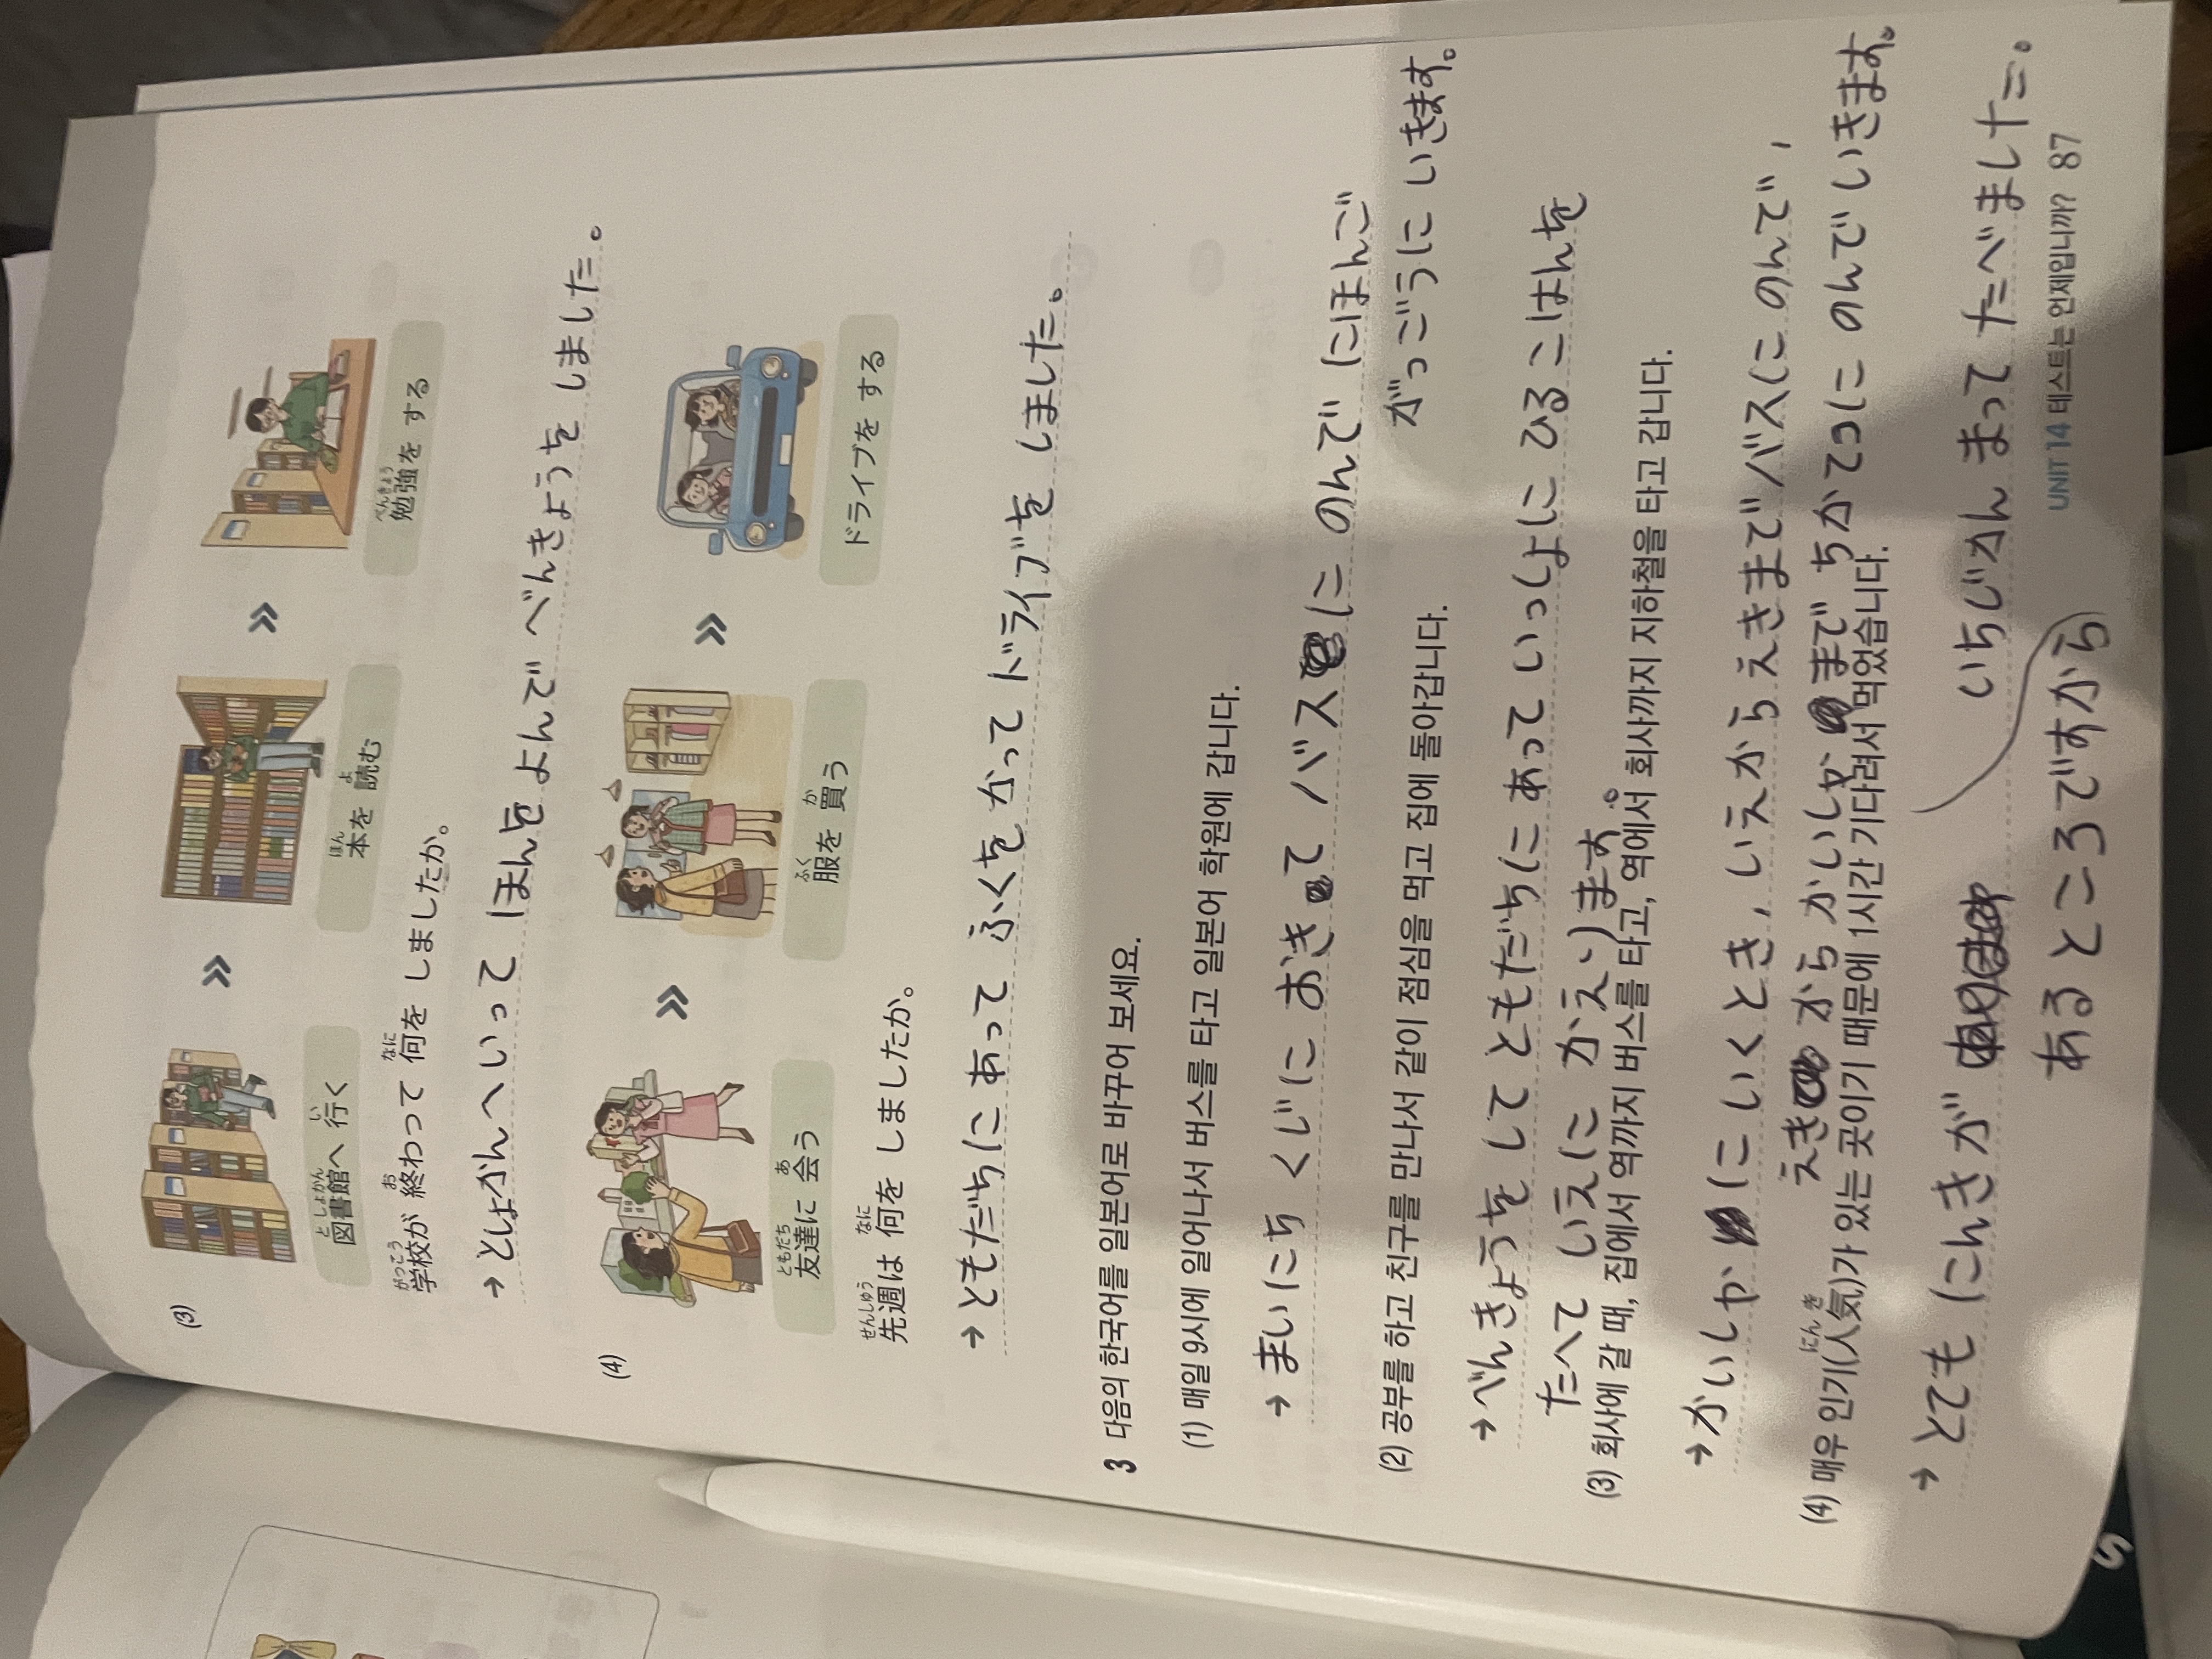 (3)
図書館へ 行く
としょかん い
本を 読む
ほん よ
勉強を する
べんきょう
学校が 終わって 何を しましたか。
がっこう お なに
→ としょかんへいって ほんを よんで べんきょうを しました。
(4)
友達に 会う
ともだち あ
服を 買う
ふく か
ドライブを する
先週は 何を しましたか。
せんしゅう なに
→ ともだちに あって ふくを かって ドライブを しました。
3 다음의 한국어를 일본어로 바꾸어 보세요.
(1) 매일 9시에 일어나서 버스를 타고 일본어 학원에 갑니다.
→ まいにち くじに おきて バスに のんで にほんご
がっごうに いきます。
(2) 공부를 하고 친구를 만나서 같이 점심을 먹고 집에 돌아갑니다.
→ べんきょうを して ともだちに あって いっしょに ひるごはんを
たべて いえに かえります。
(3) 회사에 갈 때, 집에서 역까지 버스를 타고, 역에서 회사까지 지하철을 타고 갑니다.
→ かいしゃに いくとき, いえから えきまで バスに のんで,
えきから かいしゃまで ちかてつに のんで いきます。
(4) 매우 인기(人気)가 있는 곳이기 때문에 1시간 기다려서 먹었습니다.
にんき
→ とても にんきが いちじかん まって たべました。
あるところですから
UNIT 14 테스트는 언제입니까? 87